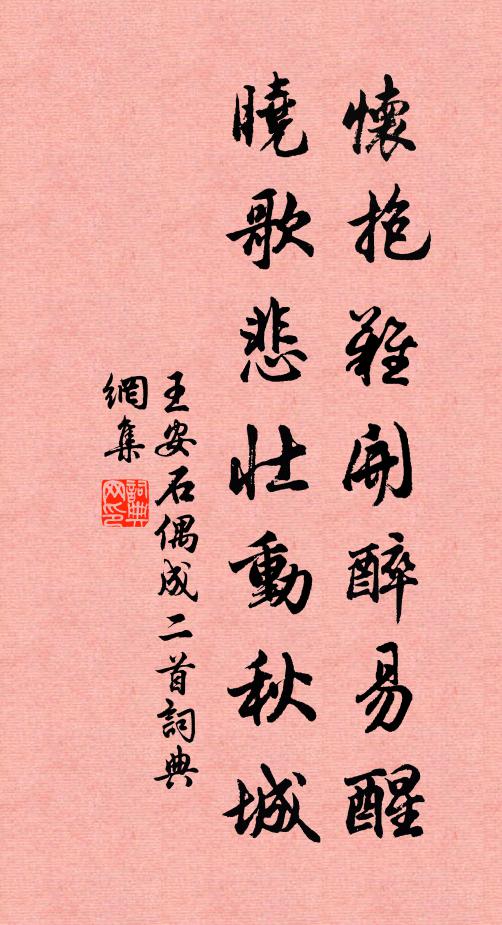 懷抱難開醉易醒
曉歌悲壯動秋城
王安石偶成二首詞典
網集
詞典
网印